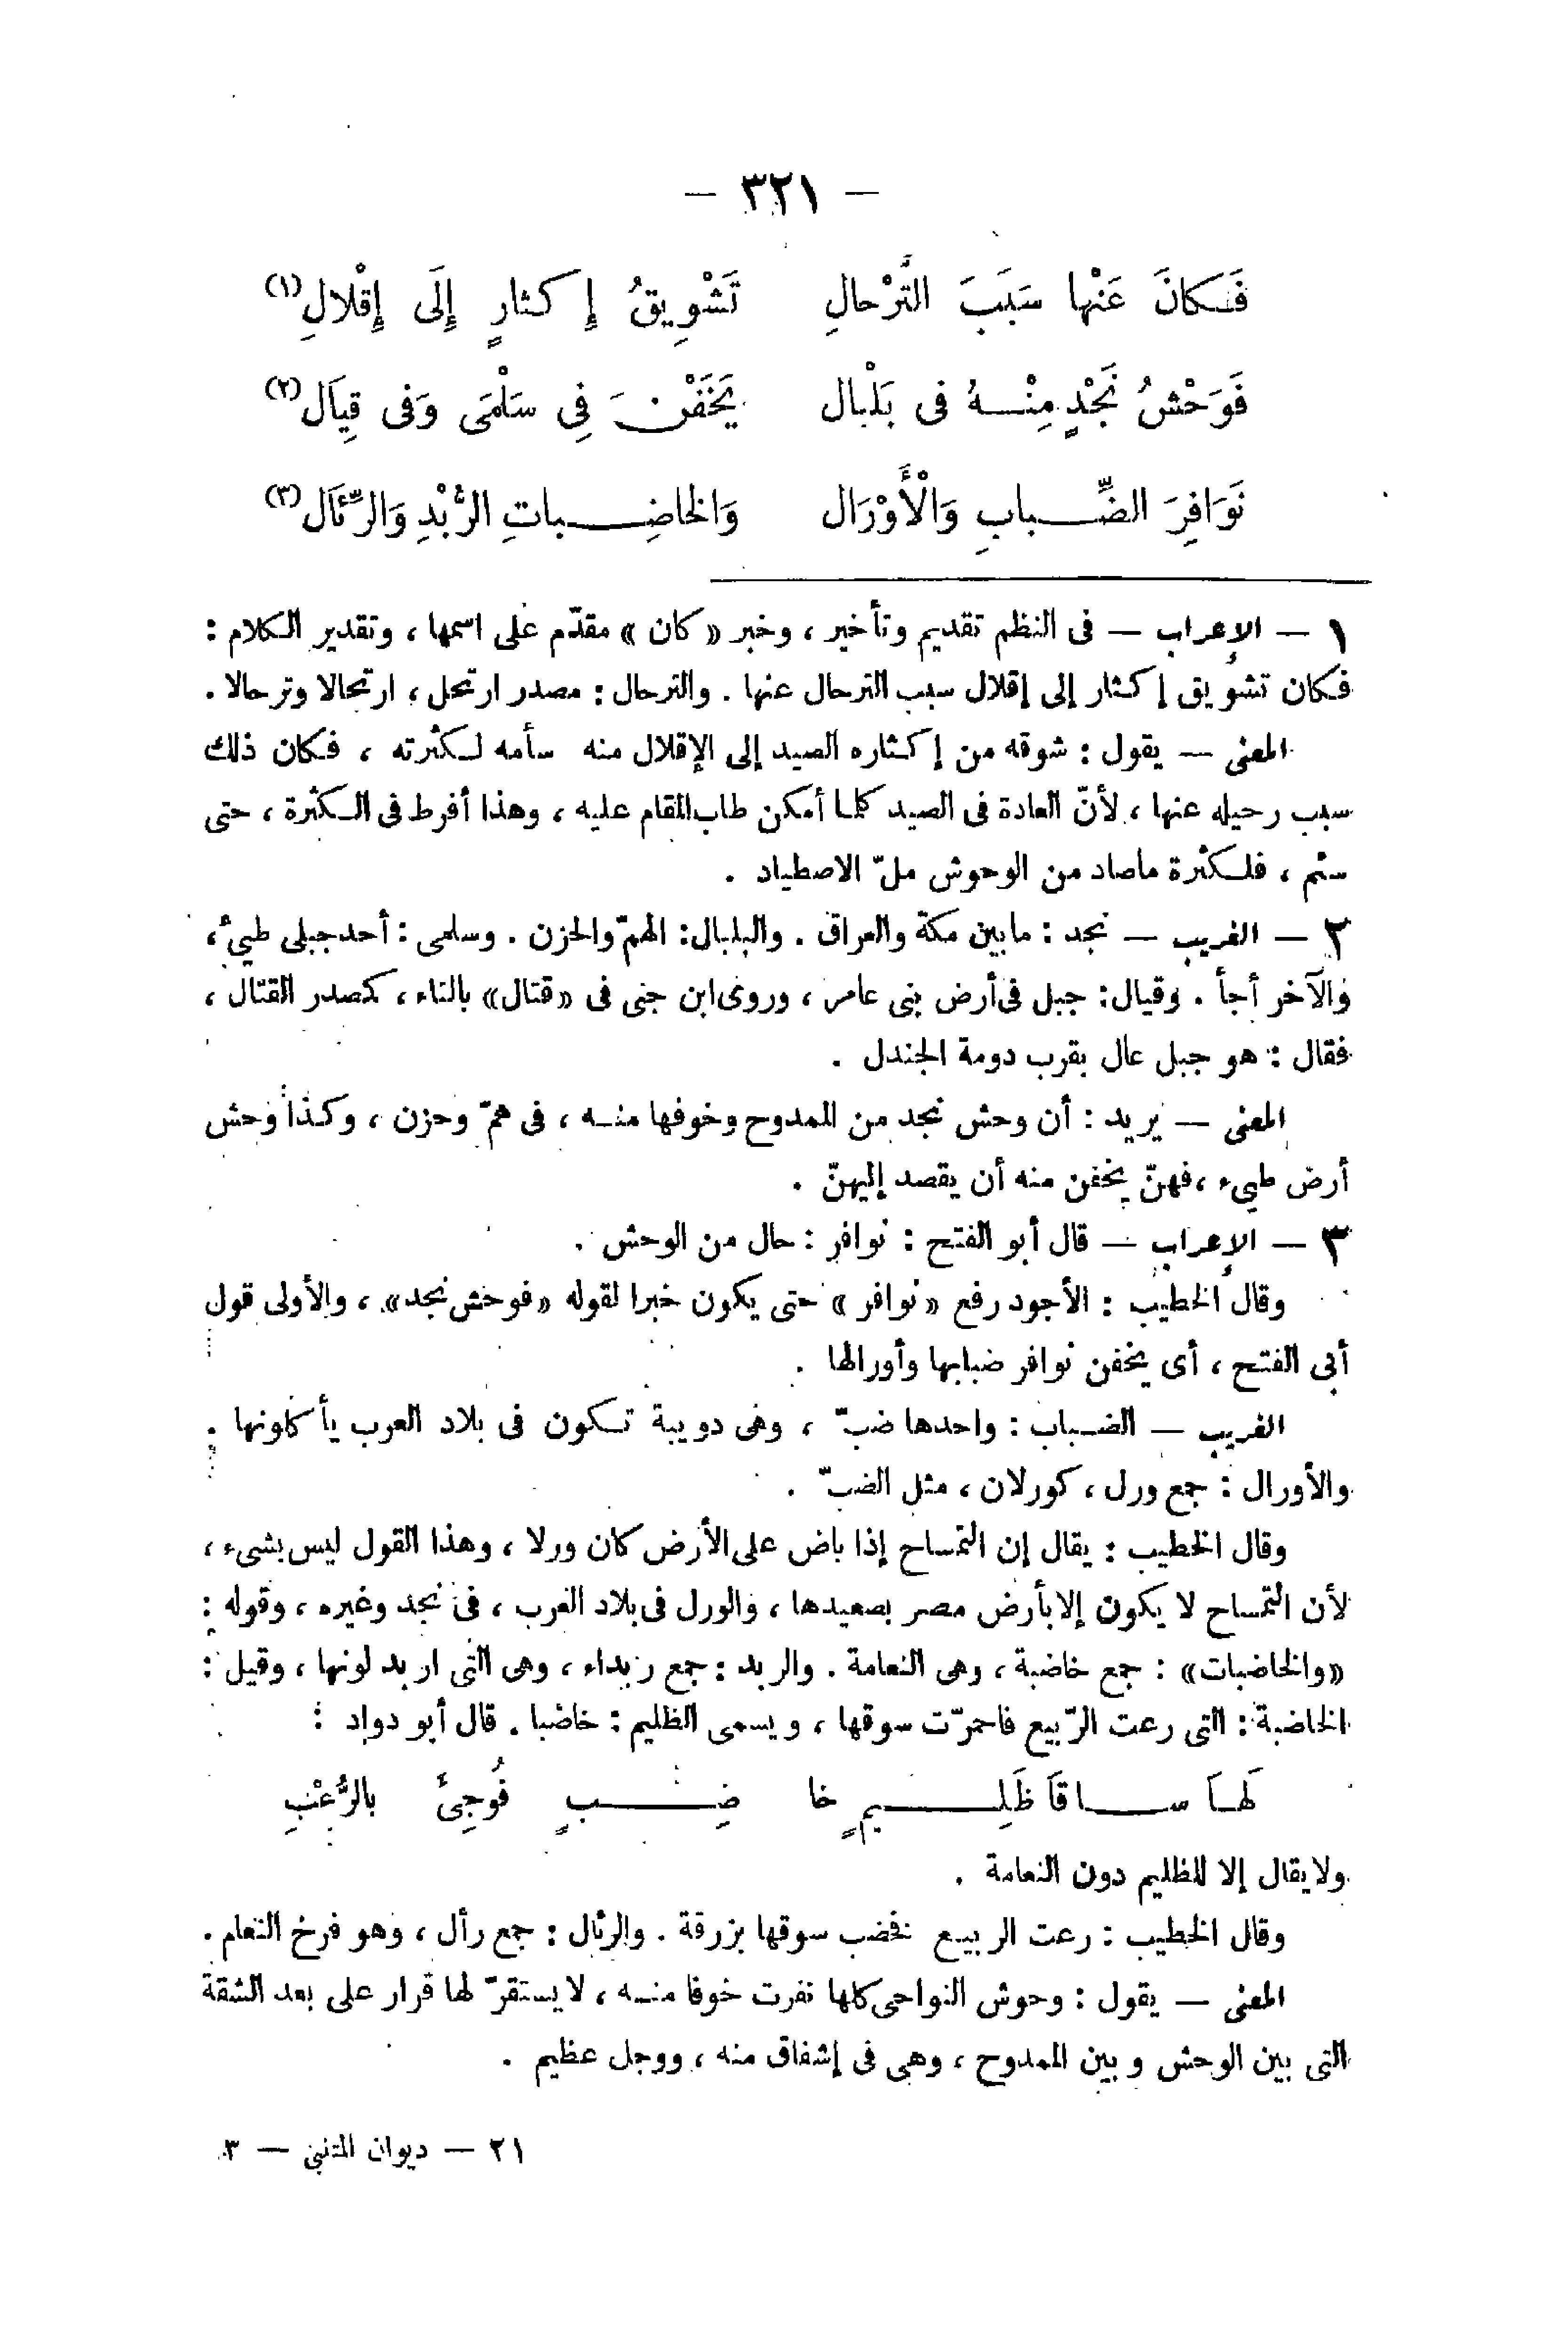 — ٣٢١ —
فَكانَ عَنْها سَبَبَ التَّرْحالِ تَشْوِيقُ إِكثارٍ إِلَى إِقْلالِ(١)
فَوَحْشُ نَجْدٍ مِنْهُ فى بَلْبال يَخَفْنَ فِى سَلْمَى وَفى قِيَال(٢)
نَوَافِرَ الضِّبابِ وَالْأَوْرَال وَالخاضِباتِ الرُّبْدِ وَالرِّئَال(٣)
١ — الإعراب — فى النظم تقديم وتأخير ، وخبر «كان» مقدّم على اسمها ، وتقدير الكلام :
فكان تشويق إكثار إلى إقلال سبب الترحال عنها . والترحال : مصدر ارتحل ، ارتحالا وترحالا .
المعنى — يقول : شوقه من إكثاره الصيد إلى الإقلال منه سأمه لكثرته ، فكان ذلك
سبب رحيله عنها ، لأنّ العادة فى الصيد كلما أمكن طاب المقام عليه ، وهذا أفرط فى الكثرة ، حتى
سئم ، فلكثرة ماصاد من الوحوش ملّ الاصطياد .
٢ — الغريب — نجد : ما بين مكة والعراق . والبلبال : الهمّ والحزن . وسلمى : أحد جبلى طيئ ،
والآخر أجأ . وقيال : جبل فى أرض بنى عامر ، وروى ابن جنى فى «قتال» بالتاء ، كمصدر القتال ،
فقال : هو جبل عال بقرب دومة الجندل .
المعنى — يريد : أن وحش نجد من الممدوح وخوفها منه ، فى همّ وحزن ، وكذا وحش
أرض طيء ، فهنّ يخفن منه أن يقصد إليهنّ .
٣ — الإعراب — قال أبو الفتح : نوافر : حال من الوحش .
وقال الخطيب : الأجود رفع «نوافر» حتى يكون خبرا لقوله «فوحش نجد» ، والأولى قول
أبى الفتح ، أى يخفن نوافر ضبابها وأورالها .
الغريب — الضباب : واحدها ضبّ ، وهى دويبة تكون فى بلاد العرب يأكلونها .
والأورال : جمع ورل ، كورلان ، مثل الضبّ .
وقال الخطيب : يقال إن التمساح إذا باض على الأرض كان ورلا ، وهذا القول ليس بشىء ،
لأن التمساح لا يكون إلا بأرض مصر بصعيدها ، والورل فى بلاد العرب ، فى نجد وغيره ، وقوله :
«والخاضبات» : جمع خاضبة ، وهى النعامة . والربد : جمع ربداء ، وهى التى اربد لونها ، وقيل :
الخاضبة : التى رعت الرّبيع فاحمرّت سوقها ، ويسمى الظليم : خاضبا . قال أبو دواد :
لَهَا سَاقَا ظَلِيمٍ خا ضِبٍ فُوجِئَ بالرُّعْبِ
ولا يقال إلا للظليم دون النعامة .
وقال الخطيب : رعت الربيع فخضب سوقها بزرقة . والرئال : جمع رأل ، وهو فرخ النعام .
المعنى — يقول : وحوش النواحى كلها نفرت خوفا منه ، لا يستقرّ لها قرار على بعد الشقة
التى بين الوحش وبين الممدوح ، وهى فى إشفاق منه ، ووجل عظيم .
٢١ — ديوان المتنبى — ٣